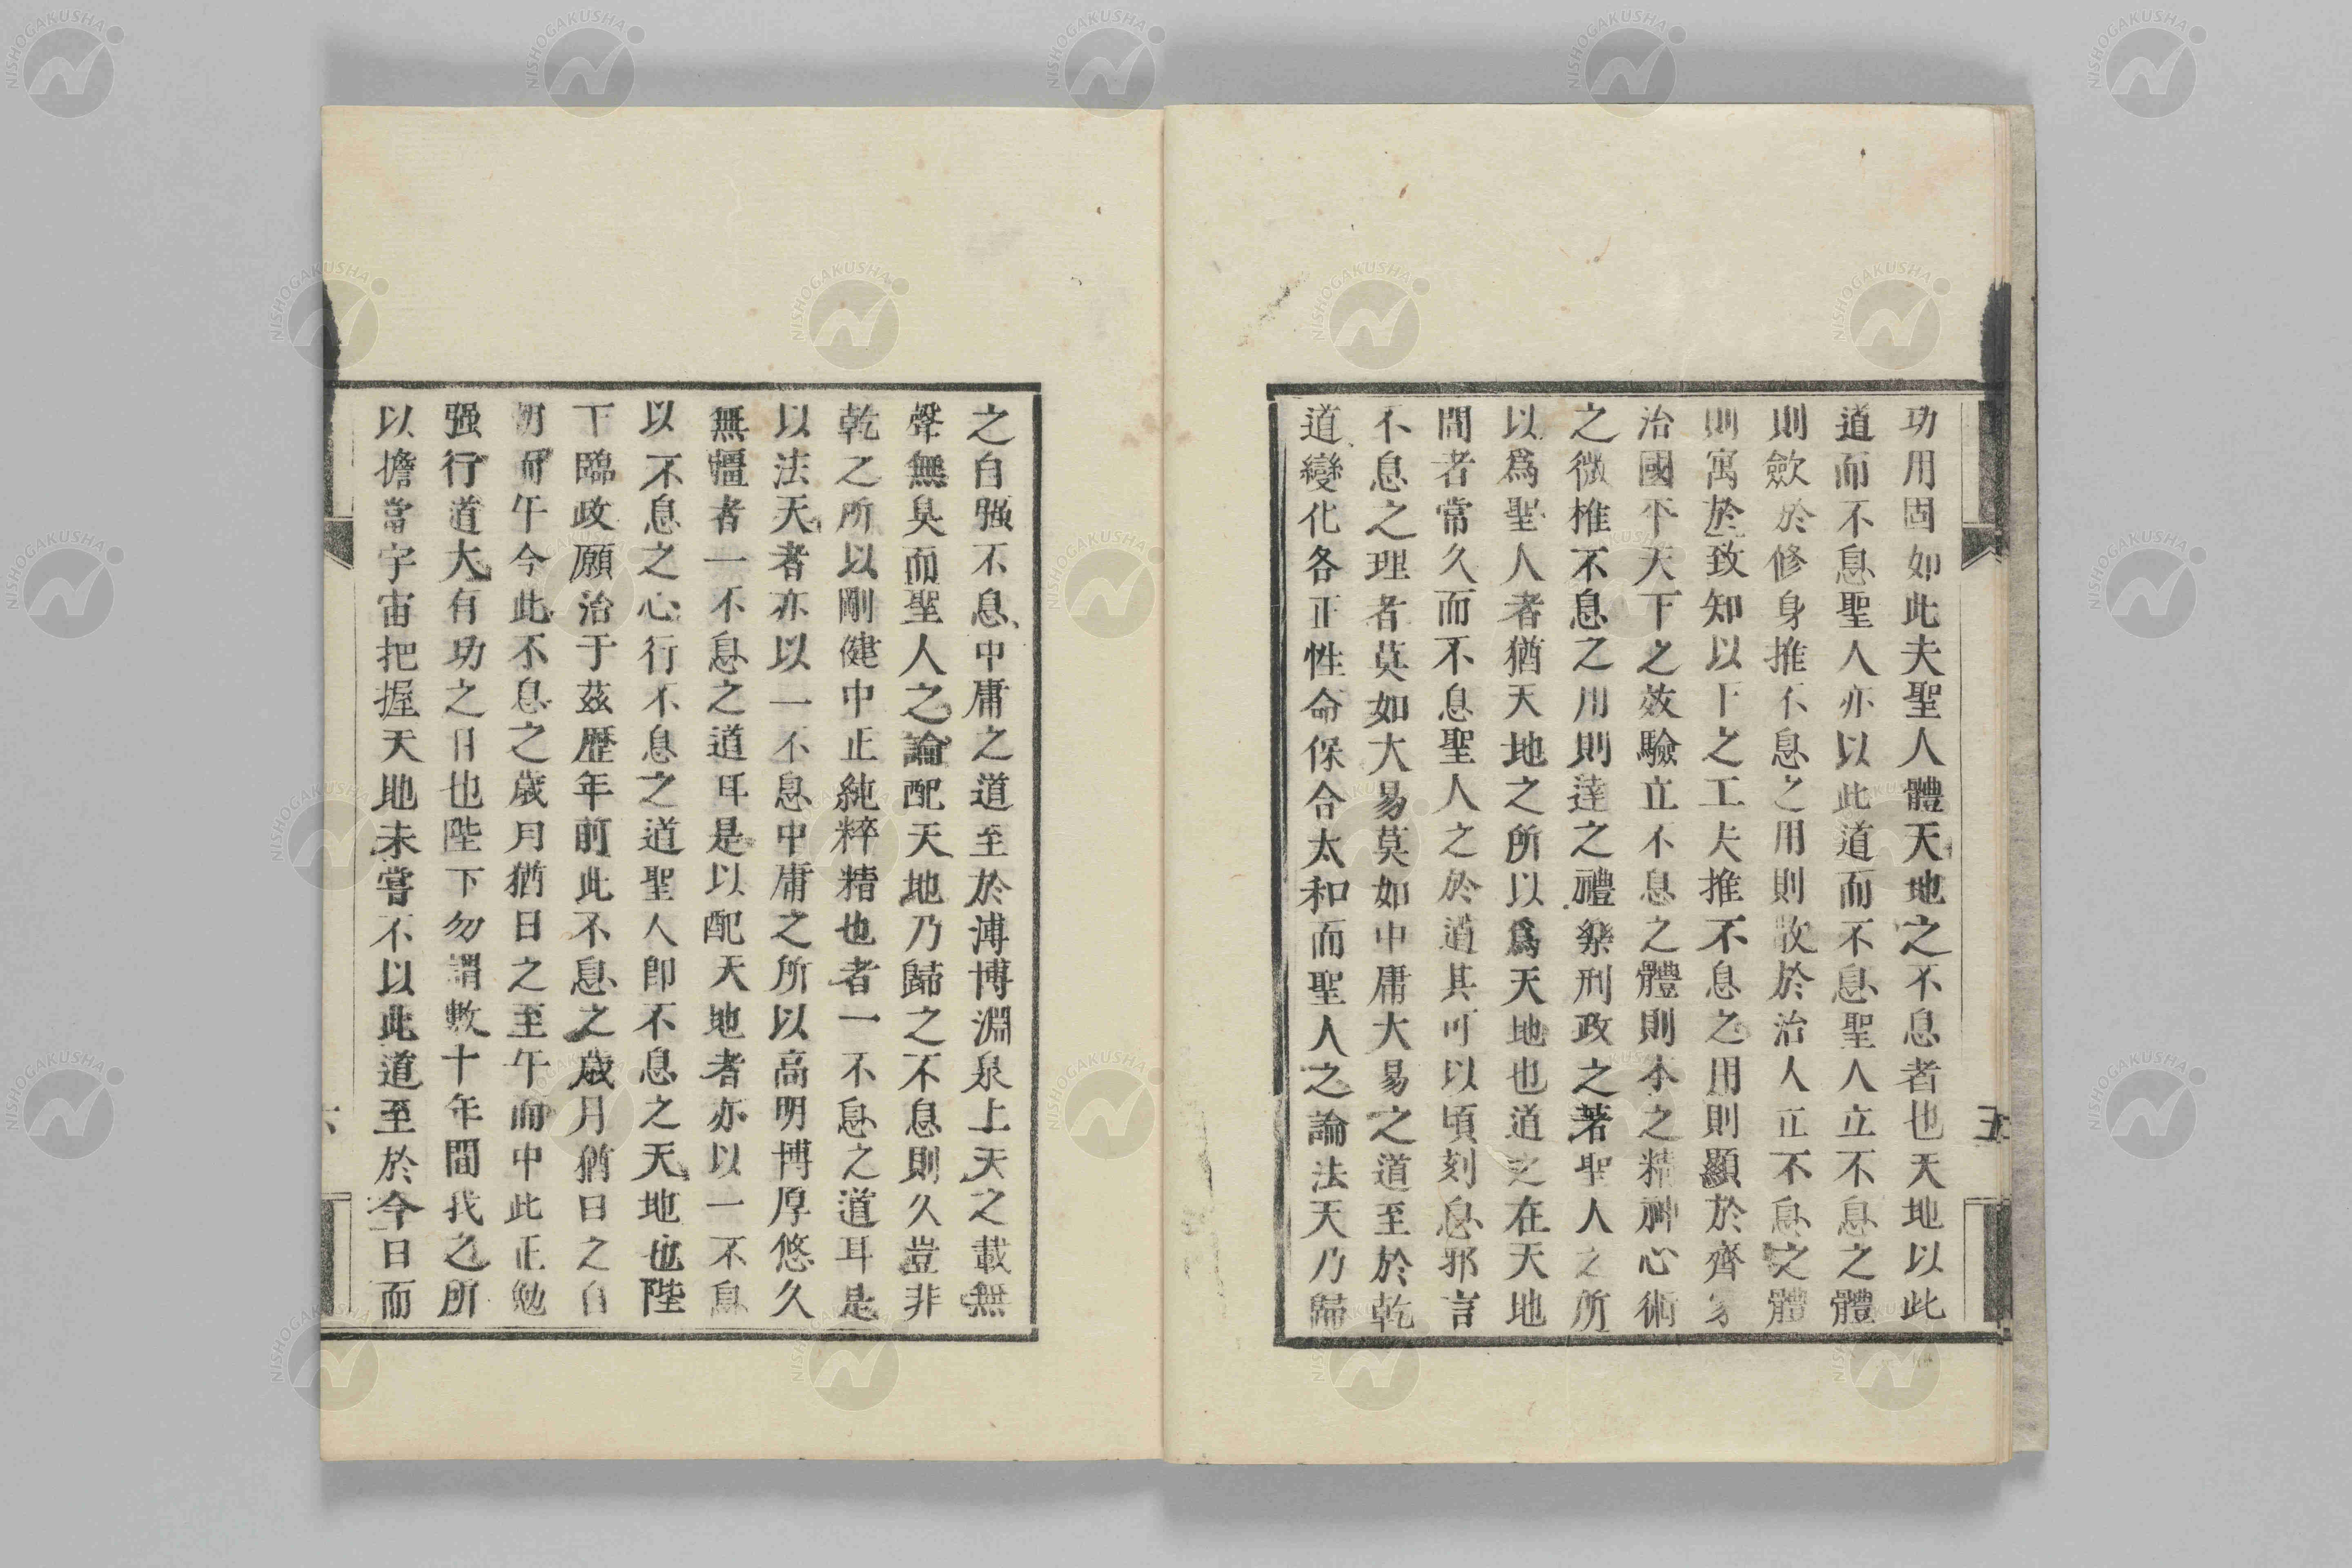 功用固如此夫聖人體天地之不息者也天地以此
道而不息聖人亦以此道而不息聖人立不息之體
則歛於修身推不息之用則散於治人立不息之體
則寓於致知以下之工夫推不息之用則顯於齊家
治國平天下之效驗立不息之體則本之精神心術
之微推不息之用則達之禮樂刑政之著聖人之所
以爲聖人者猶天地之所以爲天地也道之在天地
間者常久而不息聖人之於道其可以頃刻息邪言
不息之理者莫如大易莫如中庸大易之道至於乾
道變化各正性命保合太和而聖人之論法天乃歸
五
之自强不息中庸之道至於溥博淵泉上天之載無
聲無臭而聖人之論配天地乃歸之不息則久豈非
乾之所以剛健中正純粹精也者一不息之道耳是
以法天者亦以一不息中庸之所以高明博厚悠久
無疆者一不息之道耳是以配天地者亦以一不息
以不息之心行不息之道聖人卽不息之天地也陛
下臨政願治于茲歷年前此不息之歲月猶日之自
朝而午今此不息之歲月猶日之至午而中此正勉
强行道大有功之日也陛下勿謂數十年間我之所
以擔當宇宙把握天地未嘗不以此道至於今日而
六
NISHOGAKUSHA